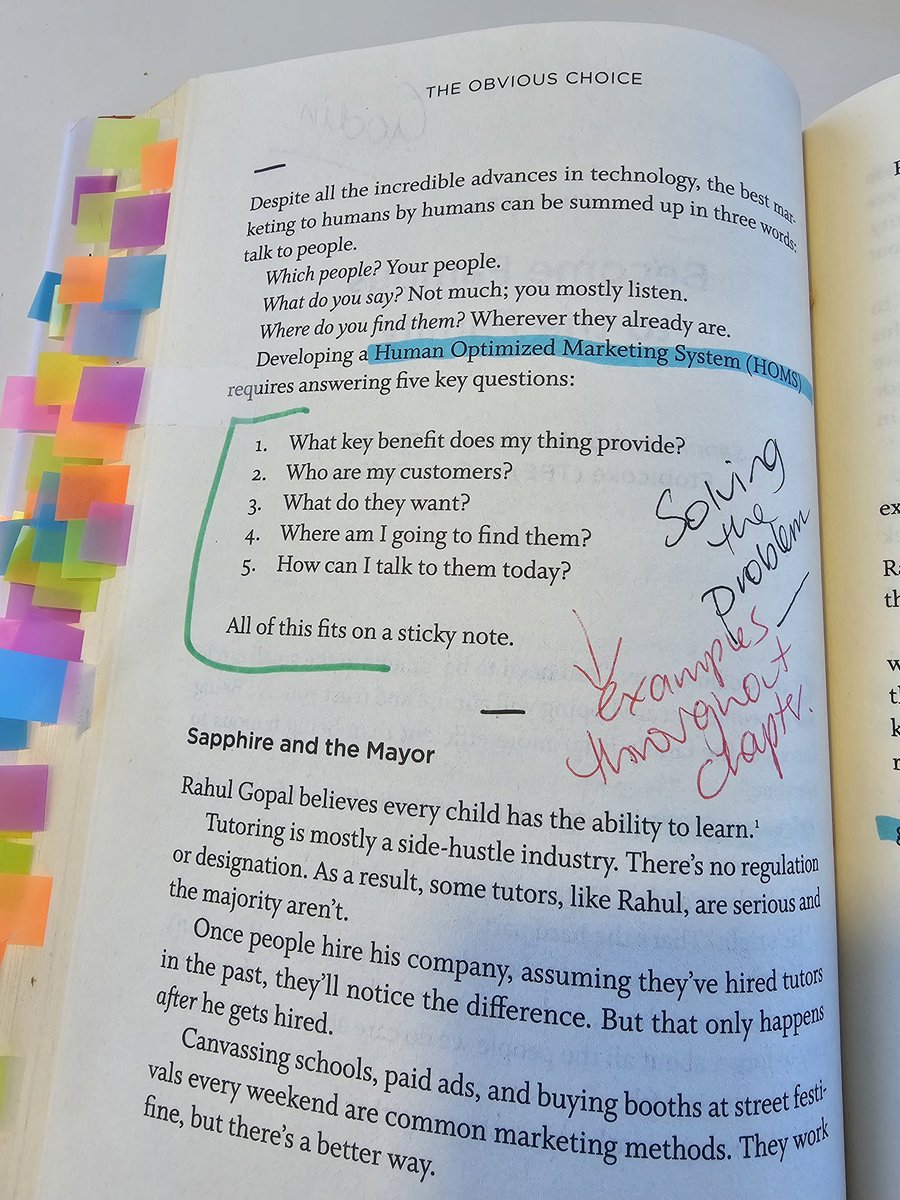 THE OBVIOUS CHOICE
Despite all the incredible advances in technology, the best mar-
keting to humans by humans can be summed up in three words:
talk to people.
Which people? Your people.
What do you say? Not much; you mostly listen.
Where do you find them? Wherever they already are.
Developing a Human Optimized Marketing System (HOMS)
requires answering five key questions:
1. What key benefit does my thing provide?
2. Who are my customers?
3. What do they want?
4. Where am I going to find them?
5. How can I talk to them today?
Solving
the
problem
All of this fits on a sticky note.
examples
throughout
chapter.
Sapphire and the Mayor
Rahul Gopal believes every child has the ability to learn.¹
Tutoring is mostly a side-hustle industry. There's no regulation
or designation. As a result, some tutors, like Rahul, are serious and
the majority aren't.
Once people hire his company, assuming they've hired tutors
in the past, they'll notice the difference. But that only happens
after he gets hired.
Canvassing schools, paid ads, and buying booths at street festi-
vals every weekend are common marketing methods. They work
fine, but there's a better way.